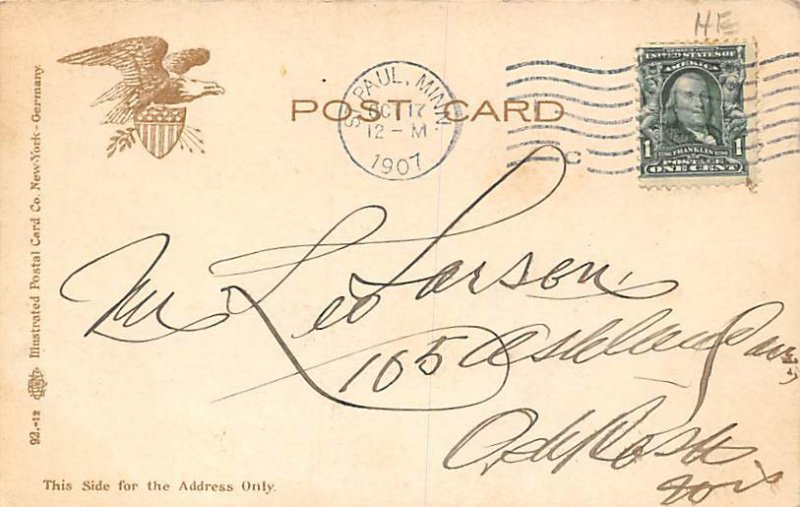 HE
POST CARD
ST. PAUL, MINN.
OCT 17
12-M
1907
C
SERIES 1902
UNITED STATES OF
AMERICA
1 1706 FRANKLIN 1790 1
POSTAGE
ONE CENT
Illustrated Postal Card Co. New-York - Germany.
92.-12
Mr Leo Larson,
165 Ashland Ave,
This Side for the Address Only.
Wis